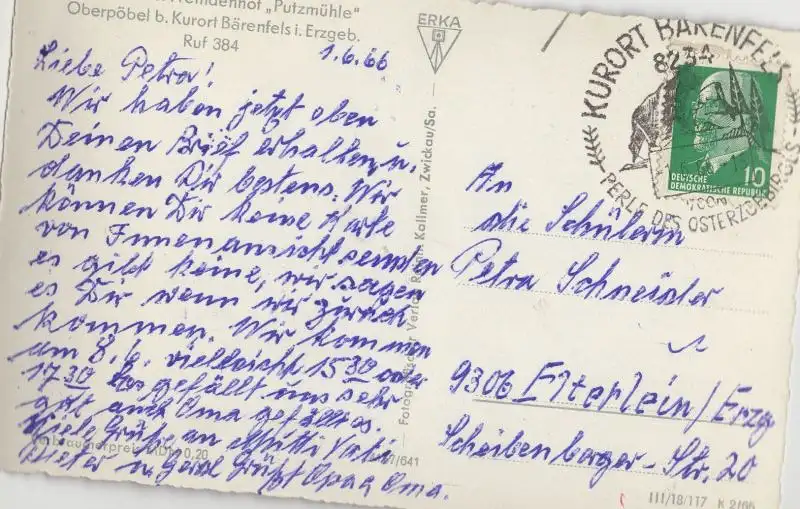 Fremdenhof „Putzmühle"
Oberpöbel b. Kurort Bärenfels i. Erzgeb.
Ruf 384
1.6.66
Liebe Petra!
Wir haben jetzt eben
Deinen Brief erhalten u.
danken Dir bestens. Wir
können Dir keine Karte
von Innenansicht senden
es gibt keine, wir sagen
es Dir wenn wir zurück
kommen. Wir kommen
um 8.6. vielleicht 15 30 oder
17 30 Es gefällt uns sehr
gut auch Oma gefällt es.
Viele Grüße an Mutti Vati
Dieter u. Gerd Grüßt Opa u Oma.
Verbraucherpreis MDN 0,20
7/641
ERKA
Fotografischer Verlag Kallmer, Zwickau/Sa.
KURORT BÄRENFELS
8234
PERLE DES OSTERZGEBIRGES
10
DEUTSCHE
DEMOKRATISCHE REPUBLIK
An
die Schülerin
Petra Schneider
9306 Elterlein/Erzg
Scheibenberger-Str. 20
III/18/117 K 2/66